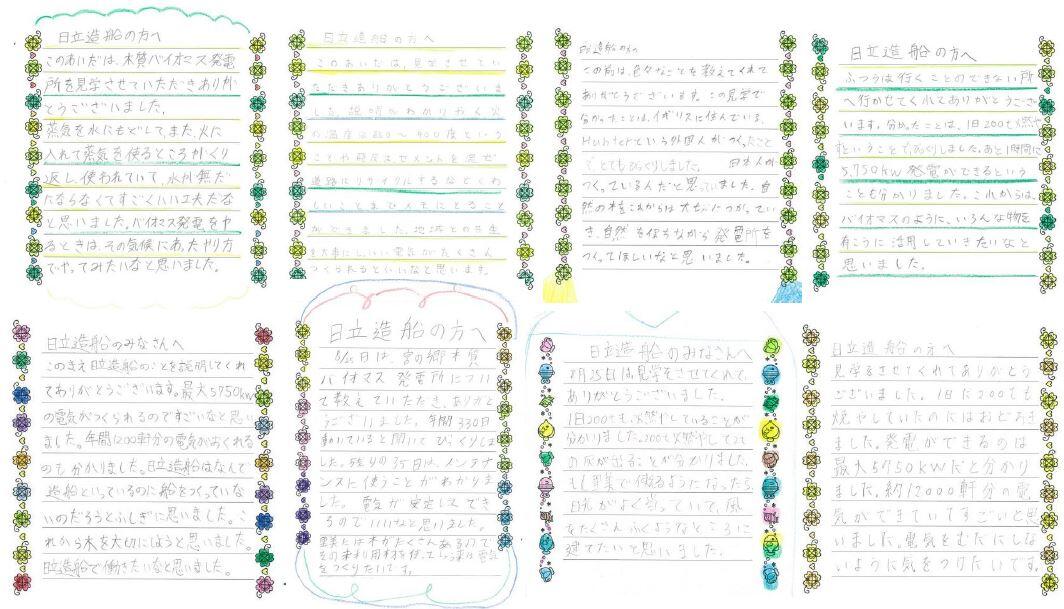 日立造船の方へ
このあいだは、木質バイオマス発電
所を見学させていただきありが
とうございました。
蒸気を水にもどして、また、火に
入れて蒸気を使るところがくり
返し使われていて、水が無だ
にならなくてすごくいい工夫だな
と思いました。バイオマス発電をや
るときは、その気候にあたやり方
でやってみたいなと思いました。
日立造船の方へ
このあいだは、見学させてい
ただきありがとうございま
した。説明がわかりやすく火
の温度は850〜900度という
ことや飛灰は、セメントを混ぜ
道路にリサイクルするなどくわ
しい
ができました。地域との共生
を大事にし、いい電気がたくさん
つくられるといいなと思います。
この前は、色々なことを教えてくれて
ありがとうございます。この見学で
分かったことは、イギリスに住んでいる、
Hunterという外国人がつくったこと
で とてもびっくりしました。 日本人が
つくっているんだと思っていました。自
然の木をこれからは大せつにつかってい
き、自然を保ちながら発電所を
つくってほしいなと思いました。
日立造船の方へ
ふつうは行くことのできない所
へ行かせてくれてありがとうござ
います。分かったことは、1日200tも燃や
すということで、びっくりしました。あと1時間に
5,750kW発電ができるという
ことも分かりました。これからは、
バイオマスのように、いろんな物を
有こうに活用していきたいなと
思いました。
日立造船のみなさんへ
このまえ日立造船のことを説明してくれ
てありがとうございます。最大5750kw
の電気がつくられるのですごいなと思い
ました。年間12000軒分の電気がおくれる
のも分かりました。日立造船はなんで
造船といっているのに船をつくっていな
いのだろうとふしぎに思いました。こ
れから木を大切にしようと思いました。
日立造船で働きたいなと思いました。
日立造船の方へ
8/25日は、宮の郷木質
バイオマス発電所につい
て教えていただき、ありがと
うございました。年間330日
動いていると聞いてびっくりしま
した。残りの35日は、メンテナ
ンスに使うことがわかりま
した。電気が安定してでき
るのでいいなと思いました。
をつくりたいです。
日立造船のみなさんへ
8月25日は見学をさせてくれて、
ありがとうございました。
1日200tも火然やしていることが
分かりました。200t火然やして
の灰が出ることが分かりました。
もし授業で
日光がよく当っていて風
がたくさんふくようなところに
建てたいと思いました。
日立造船の方へ
見学をさせてくれてありがとう
ございました。1日に200tも
焼やしていたのにはおどろき
ました。発電ができるのは
最大5750kWだと分かり
ました。約12000軒分の電
気ができていてすごいと思
いました。電気をむだにしな
いように気をつけたいです。